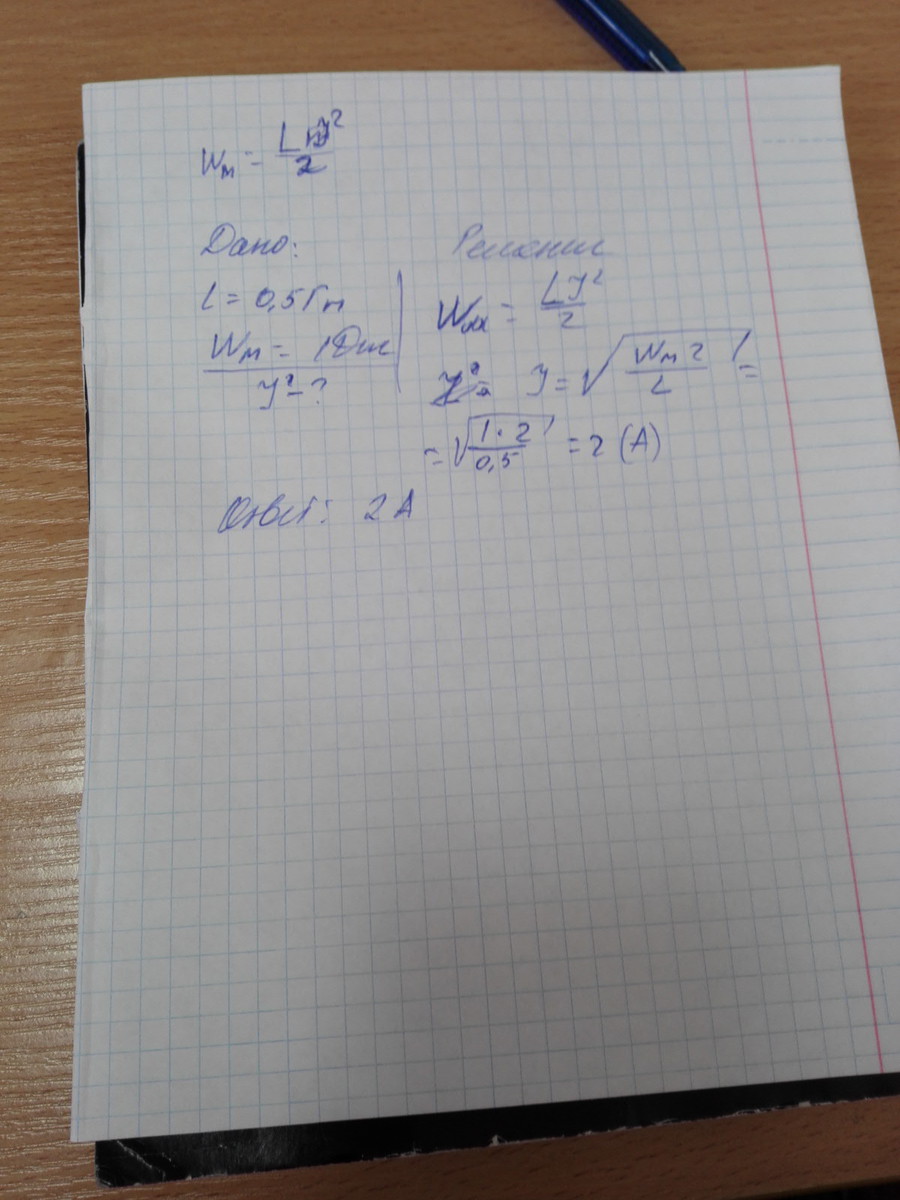 Wм = LI²/2
Дано:
L = 0,5 Гн
Wм = 1Дж
I² - ?
Решение
Wм = LI²/2
I = √(Wм 2/L) =
= √(1·2/0,5) = 2 (А)
Ответ: 2 А